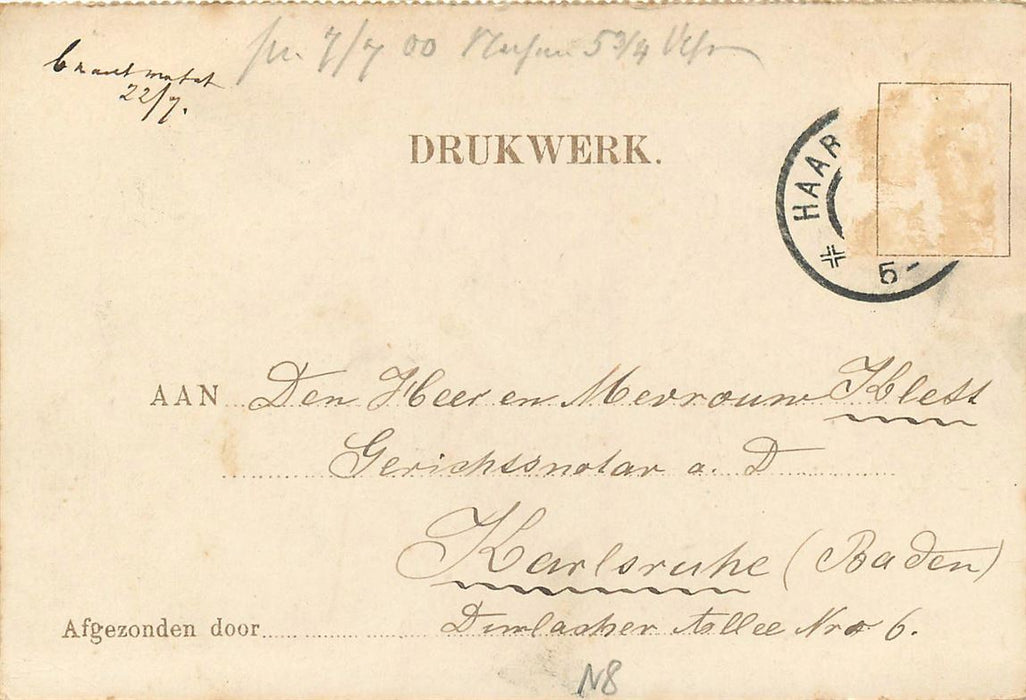 7/7 00 5 3/4 Uhr
22/7.
DRUKWERK.
HAAR
5-
AAN Den Heer en Mevrouw Klett
Gerichtsnotar a. D
Karlsruhe (Baden)
Afgezonden door Durlacher Allee Nro 6.
N8